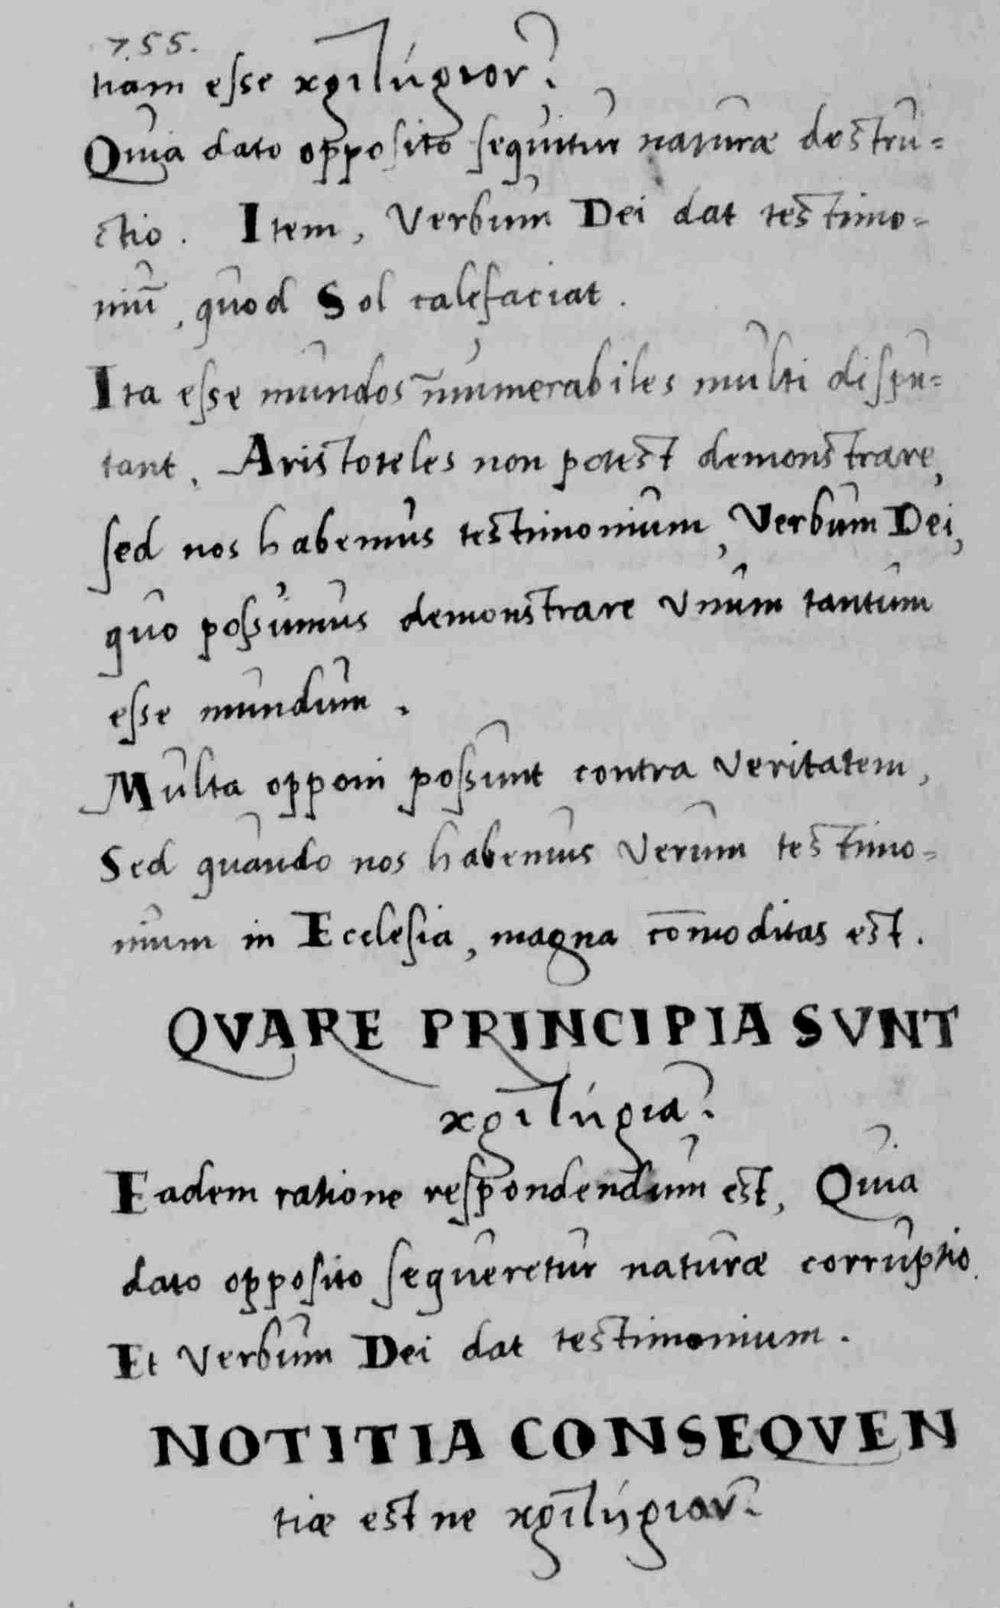 755.
tiam esse κριτήριον?
Quia dato opposito sequitur naturæ destru=
ctio. Item, Verbum Dei dat testimo=
niũ, quod Sol calefaciat.
Ita esse mundos ĩnumerabiles multi dispu=
tant. Aristoteles non potest demonstrare,
sed nos habemus testimonium, Verbum Dei,
quo possumus demonstrare Vnum tantum
esse mundum.
Multa opponi possunt contra Veritatem,
Sed quando nos habemus Verum testimo=
nium in Ecclesia, magna cõmoditas est.
QVARE PRINCIPIA SVNT
κριτήρια?
Eadem ratione respondendum est, Quia
dato opposito sequeretur naturæ corruptio.
Et Verbum Dei dat testimonium.
NOTITIA CONSEQVEN
tiæ est ne κριτήριον?